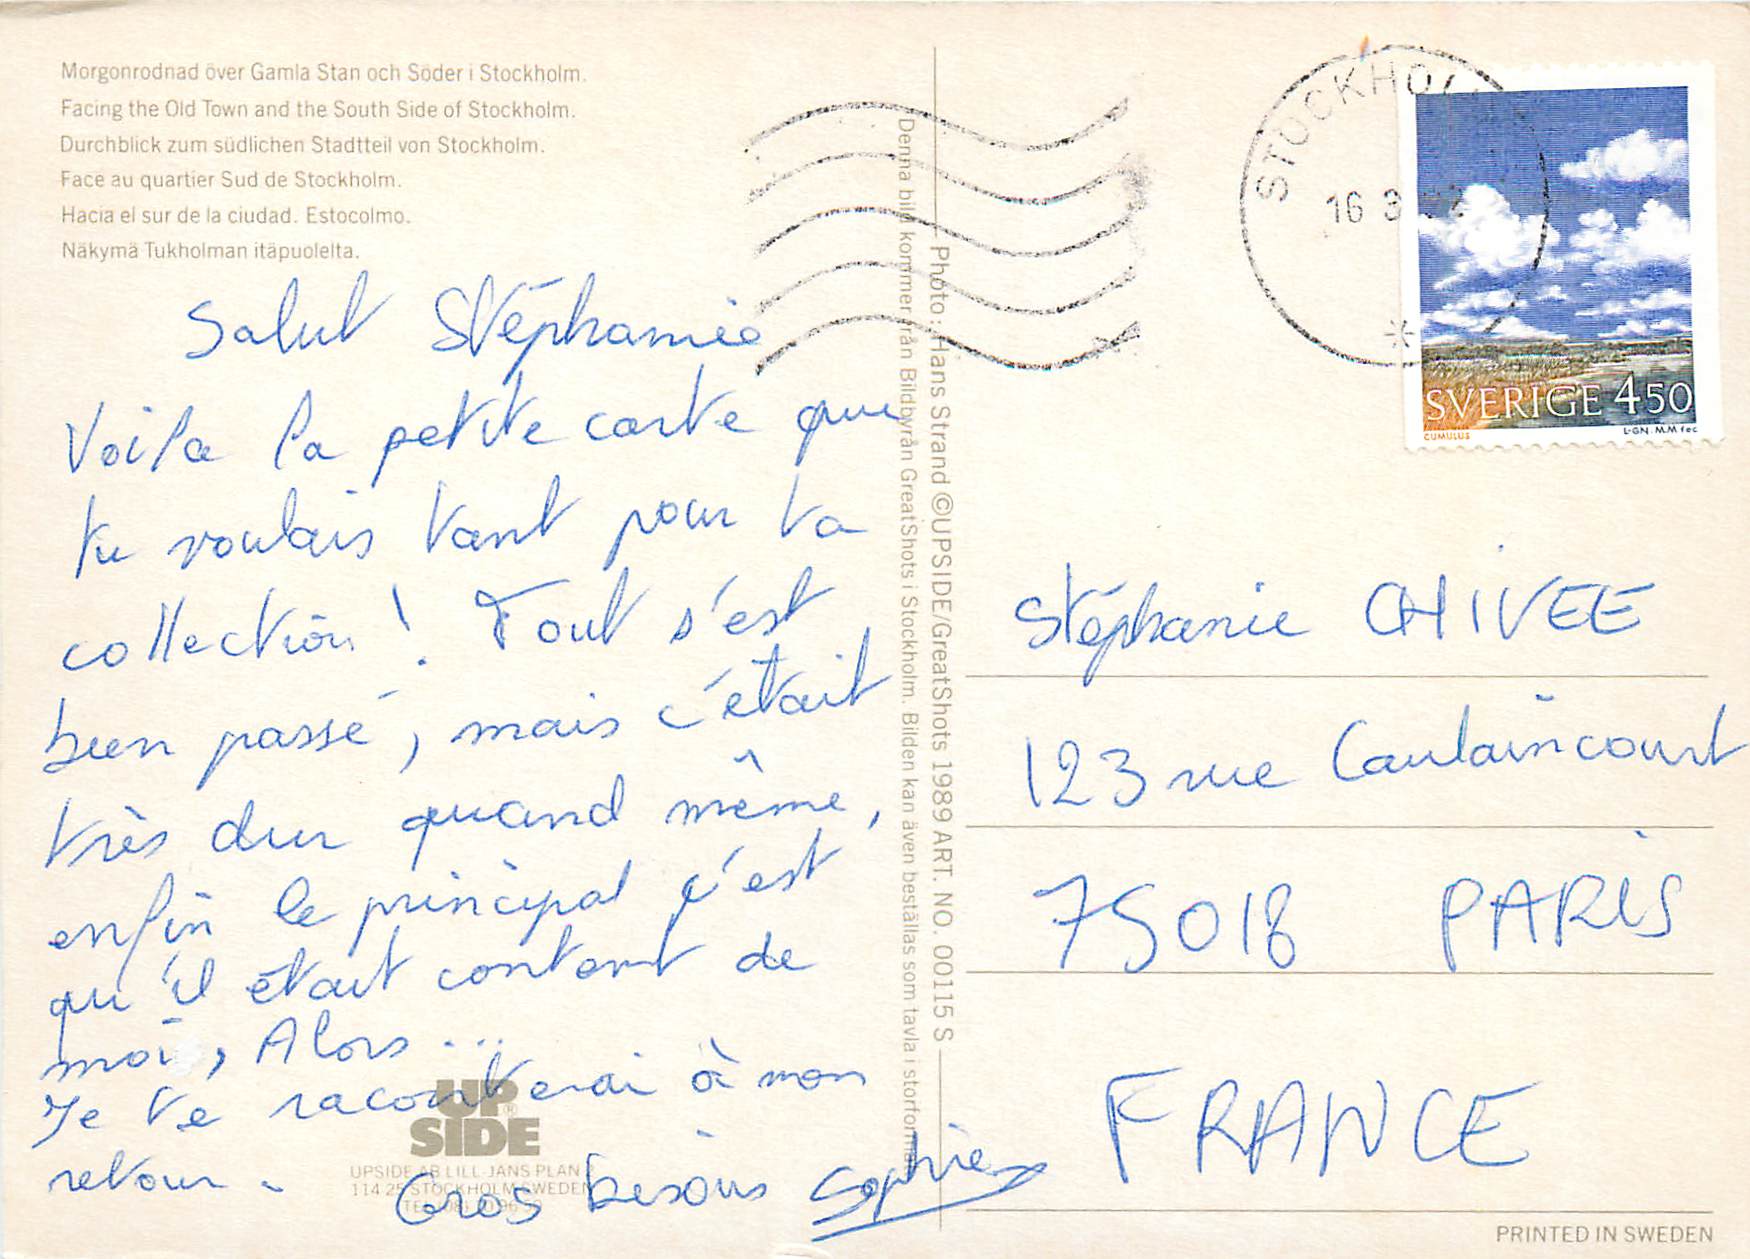 Morgonrodnad över Gamla Stan och Söder i Stockholm.
Facing the Old Town and the South Side of Stockholm.
Durchblick zum südlichen Stadtteil von Stockholm.
Face au quartier Sud de Stockholm.
Hacia el sur de la ciudad. Estocolmo.
Näkymä Tukholman itäpuolelta.
Salut Stéphanie
Voila la petite carte que
tu voulais tant pour ta
collection ! Tout s'est
bien passé, mais c'était
très dur quand même,
enfin le principal c'est
qu'il était content de
moi, Alors...
Je te raconterai à mon
retour.
Gros bisous Sophie
UP
SIDE
®
UPSIDE AB LILL-JANS PLAN
114 25 STOCKHOLM SWEDEN
Denna bild kommer från Bildbyrån GreatShots i Stockholm. Bilden kan även beställas som tavla i
Photo: Hans Strand ©UPSIDE/GreatShots 1989 ART. NO. 00115 S
STOCKHOL
16 3
SVERIGE 450
CUMULUS
L-GN. M.M fec
Stéphanie CHIVEE
123 rue Caulaincourt
75018 PARIS
FRANCE
PRINTED IN SWEDEN